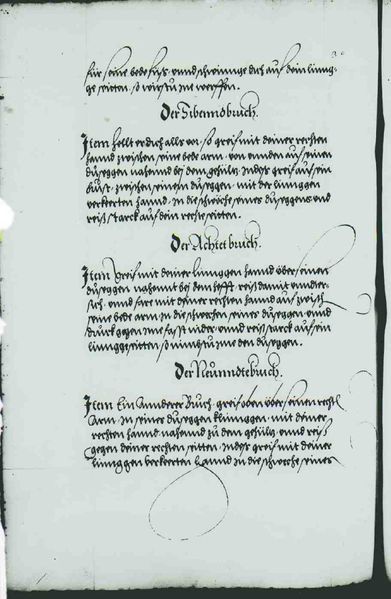 für seine bede füss · vnnd schwinnge dich auf dein linng⸗
ge seiten · so würfstu ine
Der Sibenndbruch.
Item helt er dich alls vor · so greif mit deiner rechten
hannd zwischen seine bede arm · von vnnden auf seinen
duseggen nahennd bei dem gehültz · Inndes greif auf sein
zwischen seinem duseggen · mit der linnggen
verkerten hannd · in die schweche seines duseggens vnd
reiß starck auf dein rechte seitten.
Der Achtet bruch.
Item greif mit deiner linnggen hannd über seinen
duseggen nahennt bei dem hefft · reiß damit vnndter⸗
sich · vnnd fare mit deiner rechten hannd auf
seine bede arm · in die schwechen seines duseggen · vnnd
druck gegen ime fasst nider · vnnd reiß starck auf ein
linnggeseitten · so nimbstu ime den duseggen.
Der Neunndte bruch.
Item Ein Annderer Bruch · greif oben über seinen rechten
Arm · in seines duseggen klinnggen · mit deiner
rechten hannd · nahennd zu dem gehültz · vnnd reiß
gegen deiner rechten seitten · Inndes greif mit deiner
linnggen verkeerten hannd · in die schweche seines